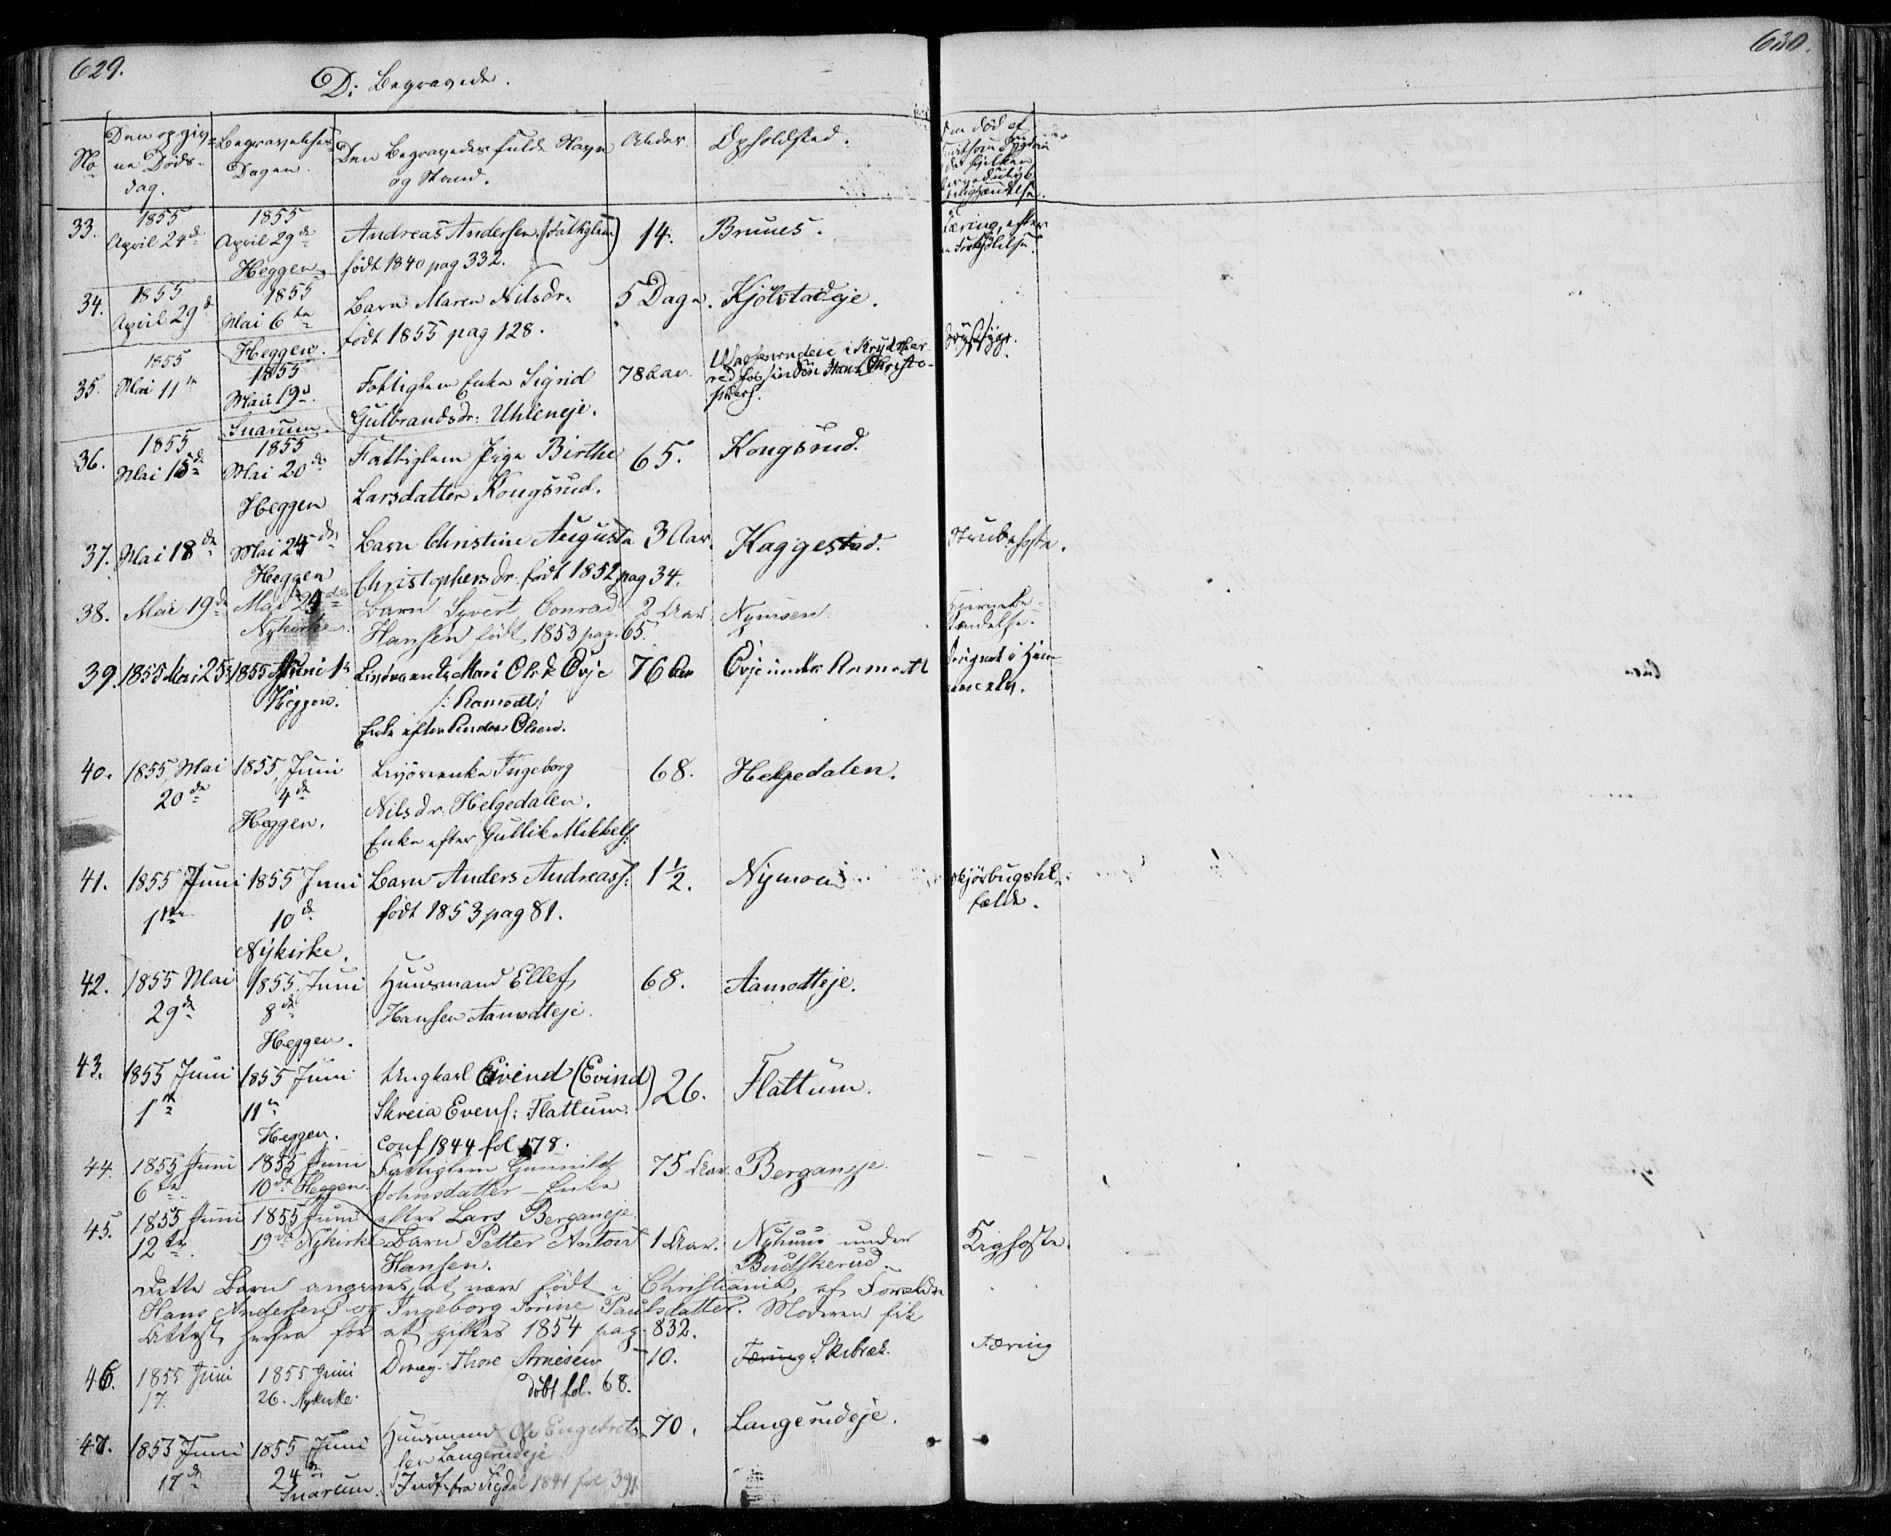 629.
630.
D: Begravede.
No
Den opgivne Dødsdag.
Begravelses Dagen.
Den Begravedes fulde Navn og Stand.
Alder.
Opholdsted.
33. 1855 April 24de 1855 April 29de Heggen. Andreas Andersen (Fattiglem) 14. Bruues. Tæring, efter
født 1840 pag 332.
34. 1855 April 29d 1855 Mai 6te Heggen. Barn Maren Nilsdr. 5 Dage. Kjølstadeje.
født 1855 pag 128.
35. 1855 Mai 11te 1855 Mai 19de Snarum. Fattiglem Enke Sigrid 78 Aar
Gulbrandsdr: Uhleneje.
36. 1855 Mai 15de 1855 Mai 20de Heggen Fattiglem Pige Birthe 65. Kongsrud.
Larsdatter Kongsrud.
37. Mai 18de Mai 25de Heggen Barn Christine Augusta 3 Aar. Kaggestad. Strubehoste.
Christophersdr. født 1852 pag 34.
38. Mai 19de Nykirke. Barn Syvert Conrad 2 Aar Nymoen. Hjernebetændelse.
Hansen født 1853 pag. 65.
39. 1855 Mai 25 1855 Juni 1 Heggen. Mari Olsd. Ovje 76 Aar Ovje under Ramodt
/: Ramodt
Enke efter Anders Olsen.
40. 1855 Mai 20de 1855, Juni 4de Heggen. Enke Ingeborg 68. Helgedalen.
Nilsdr. Helgedalen.
Enke efter Gullik Mikkels:
41. 1855 Juni 1te 1855 Juni 10de Nykirke. Barn Anders Andreass: 1½. Nymoen Skjørbugstilfælde.
født 1853 pag 81.
42. 1855 Mai 29de 1855 Juni 8de Heggen. Huusmand Ellef 68. Aamodteje.
Hansen Aamodteje.
43. 1855 Juni 1te 1855 Juni 11te Heggen. Ungkarl Eivend (Evind) 26. Flattum.
Skreia Evens: Flattum.
conf 1844 fol 178.
44. 1855 Juni 6te 1855 Juni 10de Heggen. Fattiglem Gunnild 75 Aar. Berganeje.
Johnsdatter - Enke
efter Lars Berganeje.
45. 1855 Juni 12te. 1855 Juni 19de Nykirke Barn Petter Anton 1 Aar. Nyhuus under Kighoste.
Hansen. Budskerud.
Dette Barn angives at være født i Christiania, af Forældre
Hans Andersen og Ingeborg Sørine Paulsdatter. Moderen fik
Attest herfra for at giftes 1854 pag. 832.
46. 1855 Juni 17. 1855 Juni 26. Nykirke. Dreng Thore Arnesen 10. Tæring Skibræk. Tæring
døbt fol. 68.
47. 1855 Juni 17de 1855 Juni 24de Snarum. Huusmand Ole Engebretsen Langerudeje 70. Langerudeje.
Indf. fra Sigdal 1841 fol 391.